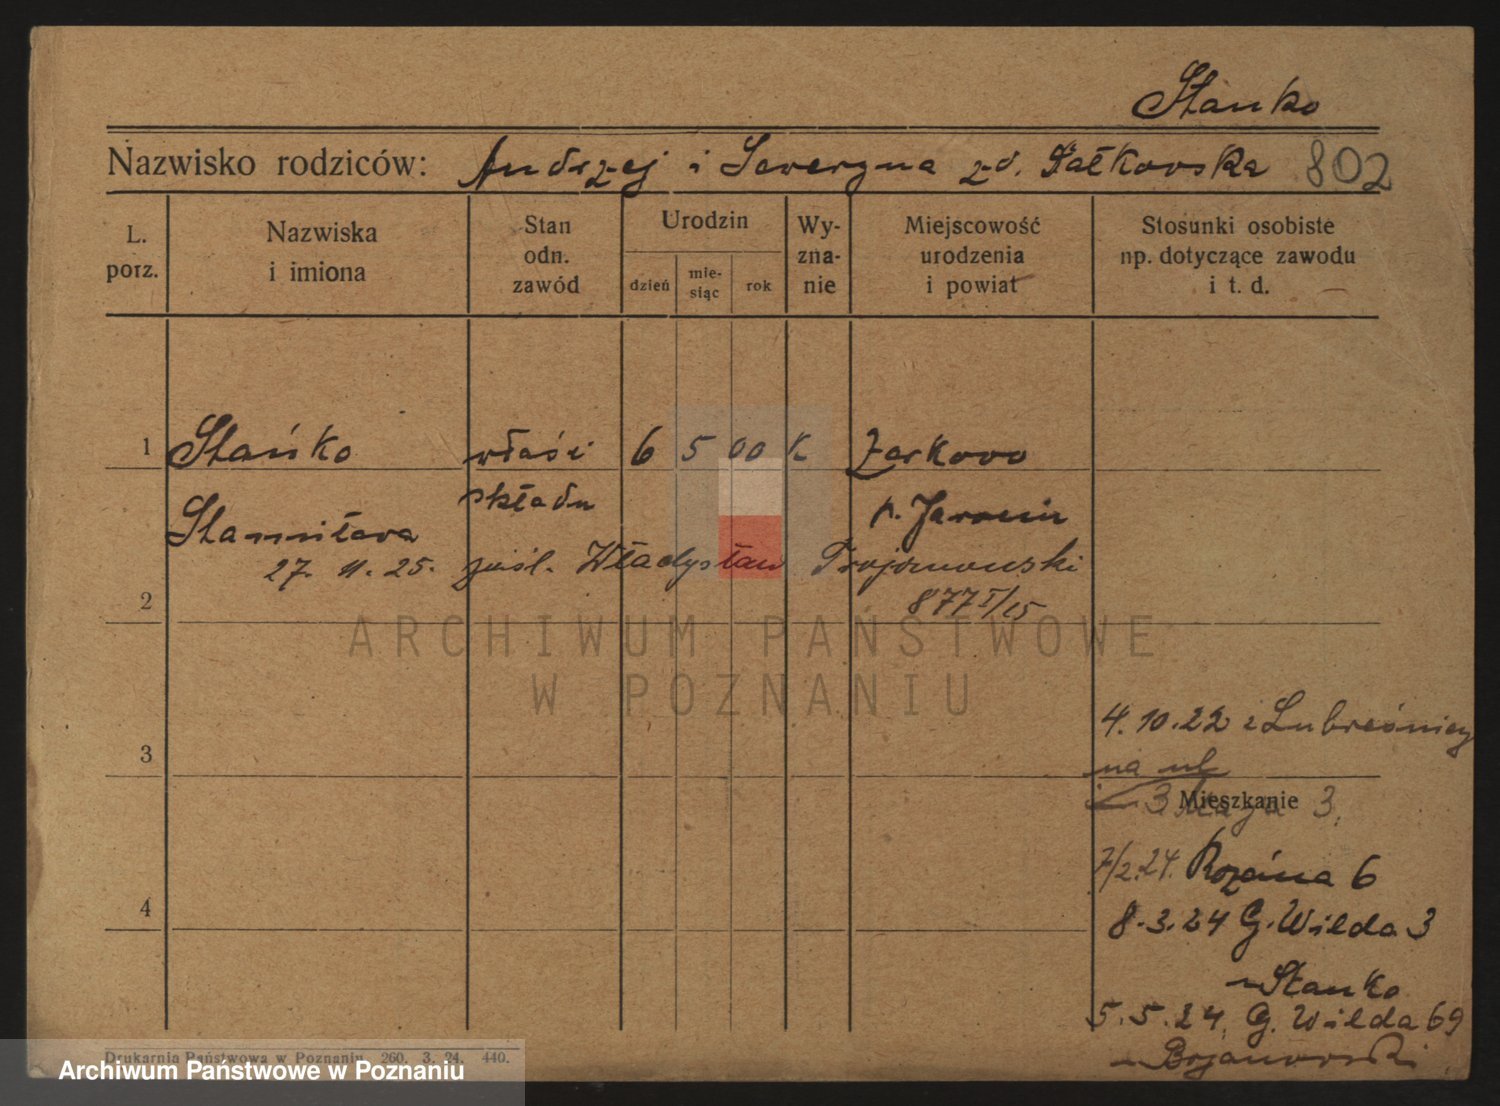 Stanko
Nazwisko rodziców: Andrzej i Seweryna z d. Fałkowska 802
L. porz.
Nazwiska i imiona
Stan odn. zawód
Urodzin
dzień
mie-siąc
rok
Wy-zna-nie
Miejscowość urodzenia i powiat
Stosunki osobiste np. dotyczące zawodu i t. d.
1 Stańko właści 6 5 00 K Żerkowo
składu p. Jarocin
Stanisława
27. 11. 25. zaśl. Władysław Trojanowski
2 877 I/15
ARCHIWUM PAŃSTWOWE
W POZNANIU
4. 10. 22 z
3 na ul
Mieszkanie
3 Maja 3.
7/2.24. Różana 6
4 8.3.24 G. Wilda 3
~Stanko
5.5.24. G. Wilda 69
~Bojanowski
Drukarnia Państwowa w Poznaniu 260. 3. 24. 440.
Archiwum Państwowe w Poznaniu